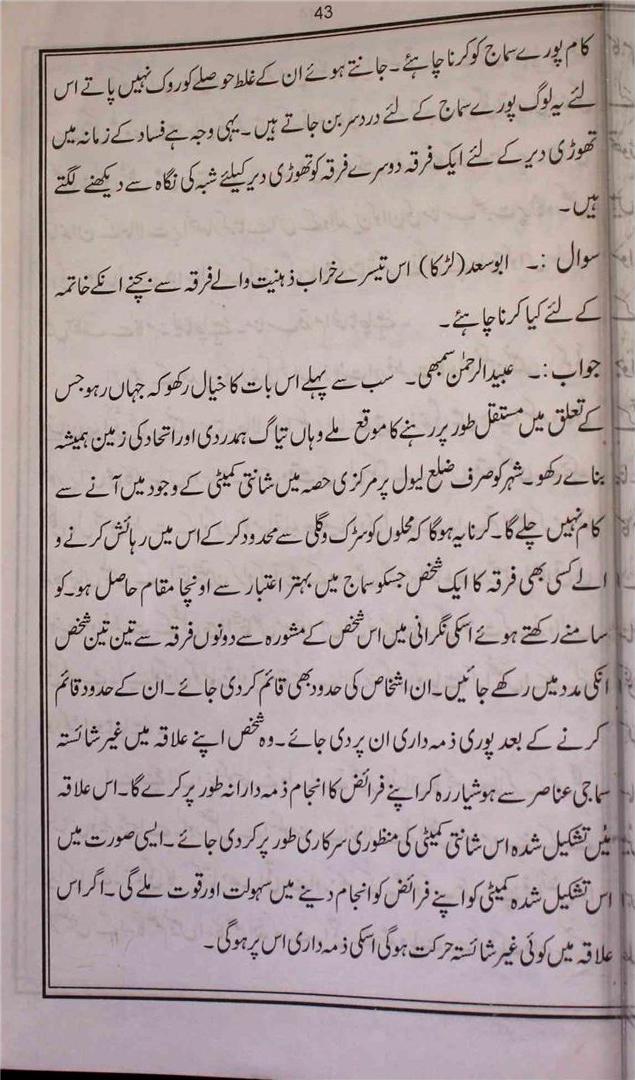 43
کام پورے سماج کو کرنا چاہئے۔ جانتے ہوئے ان کے غلط حوصلے کو روک نہیں پاتے اس
لئے یہ لوگ پورے سماج کے لئے دردسر بن جاتے ہیں۔ یہی وجہ ہے فساد کے زمانہ میں
تھوڑی دیر کے لئے ایک فرقہ دوسرے فرقہ کو تھوڑی دیر کیلئے شبہ کی نگاہ سے دیکھنے لگتے
ہیں۔
سوال :۔ ابوسعد (لڑکا) اس تیسرے خراب ذہنیت والے فرقہ سے بچنے انکے خاتمہ
کے لئے کیا کرنا چاہئے۔
جواب :۔ عبیدالرحمٰن سمبھی۔ سب سے پہلے اس بات کا خیال رکھو کہ جہاں رہو جس
کے تعلق میں مستقل طور پر رہنے کا موقع ملے وہاں تیاگ ہمدردی اور اتحاد کی زمین ہمیشہ
بناے رکھو۔ شہر کو صرف ضلع لیول پر مرکزی حصہ میں شانتی کمیٹی کے وجود میں آنے سے
کام نہیں چلے گا۔ کرنا یہ ہوگا کہ محلوں کو سڑک و گلی سے محدود کر کے اس میں رہائش کرنے و
الے کسی بھی فرقہ کا ایک شخص جسکو سماج میں بہتر اعتبار سے اونچا مقام حاصل ہو۔ کو
سامنے رکھتے ہوئے اسکی نگرانی میں اس شخص کے مشورہ سے دونوں فرقہ سے تین تین شخص
انکی مدد میں رکھے جائیں۔ ان اشخاص کی حدود بھی قائم کر دی جائے۔ ان کے حدود قائم
کرنے کے بعد پوری ذمہ داری ان پر دی جائے۔ وہ شخص اپنے علاقہ میں غیر شائستہ
سماجی عناصر سے ہوشیار رہ کر اپنے فرائض کا انجام ذمہ دارانہ طور پر کرے گا۔ اس علاقہ
میں تشکیل شدہ اس شانتی کمیٹی کی منظوری سرکاری طور پر کر دی جائے۔ ایسی صورت میں
اس تشکیل شدہ کمیٹی کو اپنے فرائض کو انجام دینے میں سہولت اور قوت ملے گی۔ اگر اس
علاقہ میں کوئی غیر شائستہ حرکت ہوگی اسکی ذمہ داری اس پر ہوگی۔